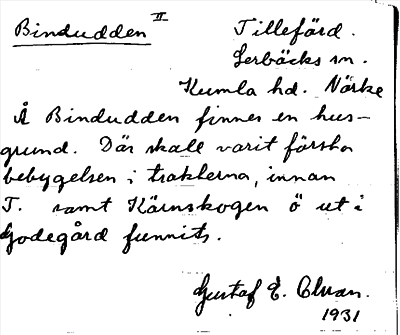 Bindudden II
Tilleförd.
Lerbäcks sn.
Kumla hd. Närke
Å Bindudden finnes en hus-
grund. Där skall varit första
bebygelsen i trakterna, innan
T. samt Kärnskogen ö ut i
Godegård funnits.
Gustaf E.
1931